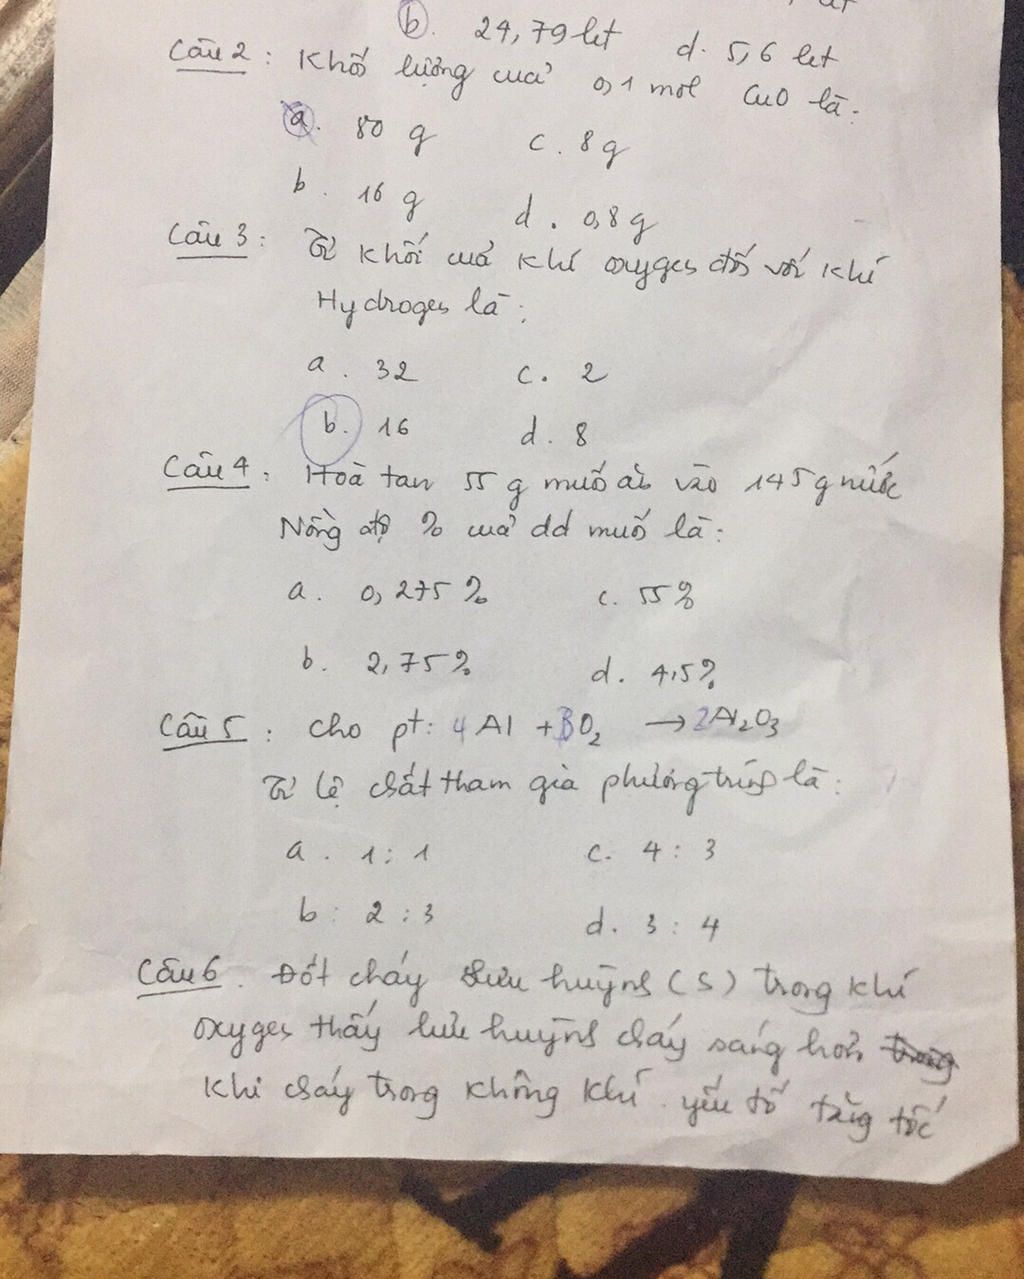 b. 24,79 let d. 5,6 let
Câu 2 : Khối lượng của 0,1 mol CuO là:
a. 80 g c. 8 g
b. 16 g d. 0,8 g
Câu 3 : Tỉ khối của khí oxygen đối với khí
Hydrogen là:
a. 32 c. 2
b. 16 d. 8
Câu 4 : Hoà tan 55 g muối ăn vào 145 g nước
Nồng độ % của dd muối là:
a. 0,275 % c. 55 %
b. 2,75 % d. 4,5 %
Câu 5 : Cho pt: 4 Al + 3O₂ → 2Al₂O₃
Tỉ lệ chất tham gia phương trình là:
a. 1 : 1 c. 4 : 3
b : 2 : 3 d. 3 : 4
Câu 6. Đốt cháy lưu huỳnh (S) trong khí
oxygen thấy lưu huỳnh cháy sáng hơn trong
khi cháy trong không khí. yếu tố tăng tốc